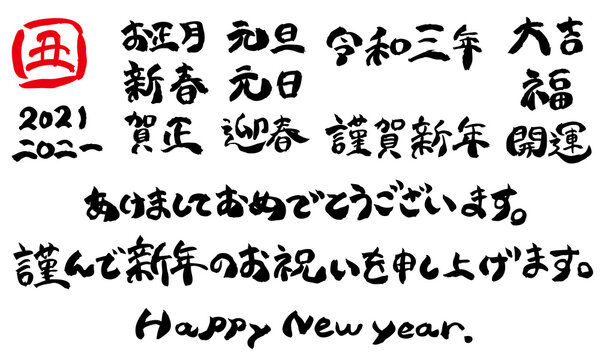 丑
2021
二〇二一
お正月
新春
賀正
元旦
元日
迎春
令和三年
謹賀新年
大吉
福
開運
あけましておめでとうございます。
謹んで新年のお祝いを申し上げます。
Happy New year.